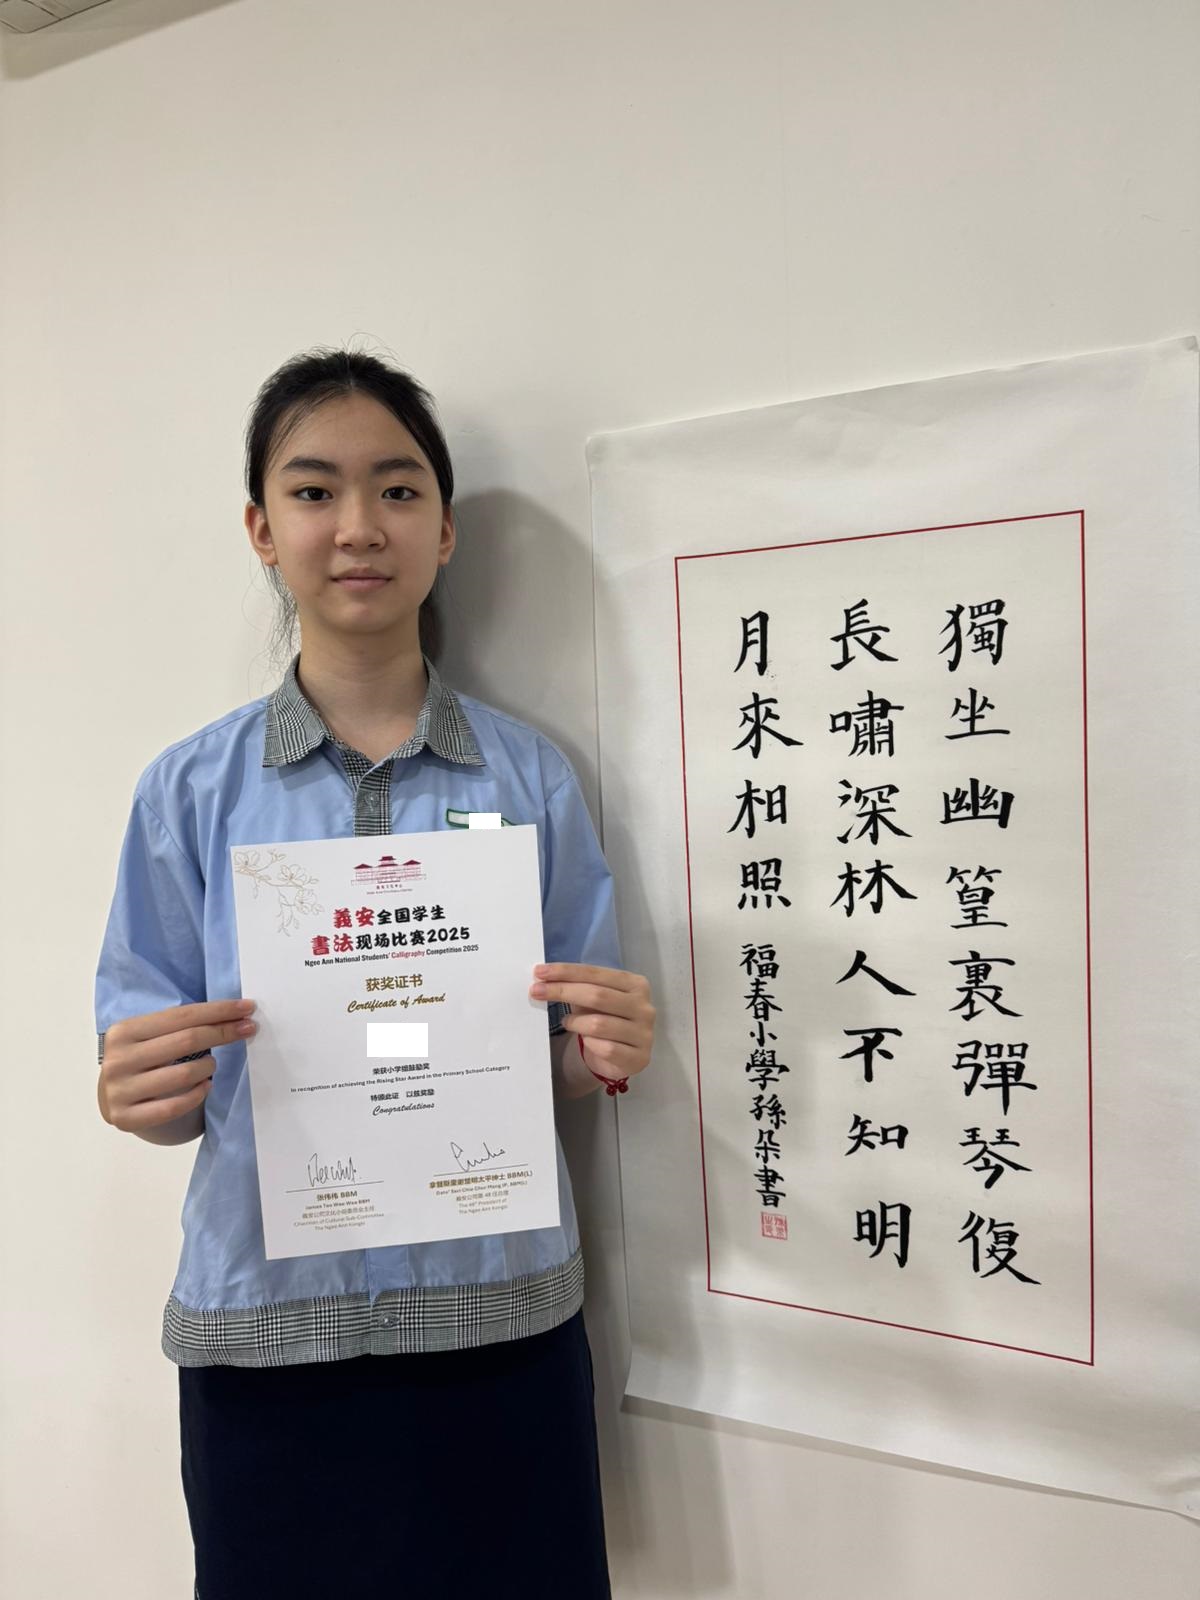 義安全国学生
書法现场比赛2025
Ngee Ann National Students' Calligraphy Competition 2025
获奖证书
Certificate of Award
荣获小学组鼓励奖
In recognition of achieving the Rising Star Award in the Primary School Category
特颁此证 以兹奖励
Congratulations
BBM
James BBM
義安公司文化小组委员会主任
Chairman of Cultural Sub-Committee
The Ngee Ann Kongsi
太平绅士 BBM(L)
Dato' Seri Chia Chor Meng JP, BBM(L)
義安公司第 48 任总理
The 48th President of
The Ngee Ann Kongsi
獨坐幽篁裏彈琴復
長嘯深林人不知明
月來相照
福春小學孫朵書